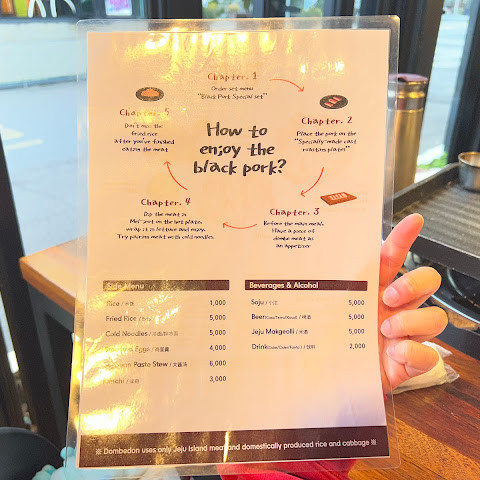 Chapter. 1
Order set menu
"Black Pork Special set"
Chapter. 2
Place the pork on the
"Specially made cast
roasting plates"
Chapter. 3
Before the main meal,
Have a piece of
dombe meat as
an appetizer
Chapter. 4
Dip the meat in
Mel-jeot on the hot plate,
wrap it in lettuce and enjoy.
Try pairing meat with cold noodles
Chapter. 5
Don't miss the
fried rice
after you've finished
eating the meat
How to
enjoy the
black pork?
Side Menu
Rice / 1,000
Fried Rice / 5,000
Cold Noodles / 5,000
Eggs / 4,000
Paste Stew / 大酱汤 6,000
Kimchi / 3,000
Beverages & Alcohol
Soju / 烧酒 5,000
Beer / 啤酒 5,000
Jeju Makgeolli / 米酒 5,000
Drink / 饮料 2,000
※ Dombedon uses only Jeju Island meat and domestically produced rice and cabbage ※